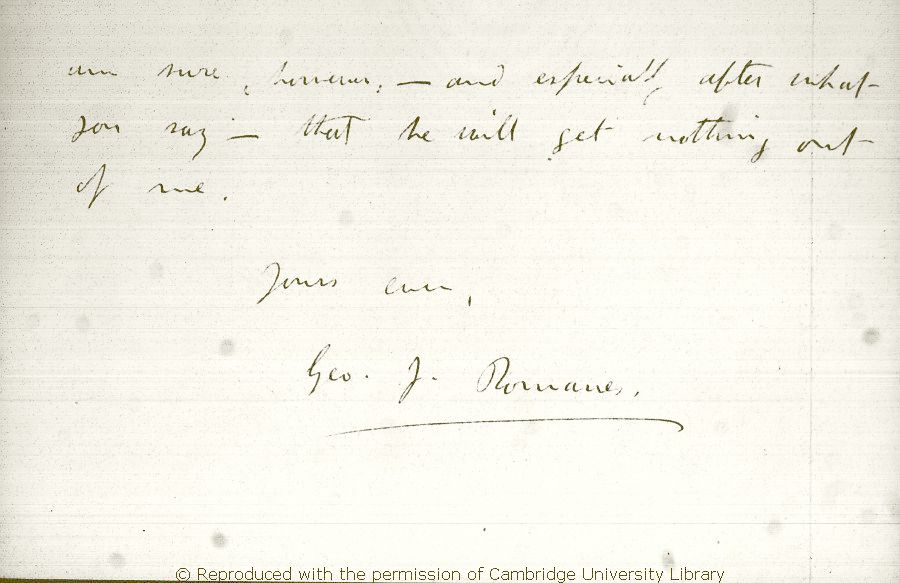 am sure, however, — and especially after what
you say — that he will get nothing out
of me.
Yours ever,
Geo. J. Romanes.
© Reproduced with the permission of Cambridge University Library